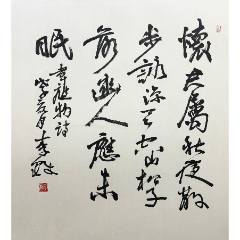 懷君屬秋夜散
步詠涼天空山松子
落幽人應未
眠
韋應物詩